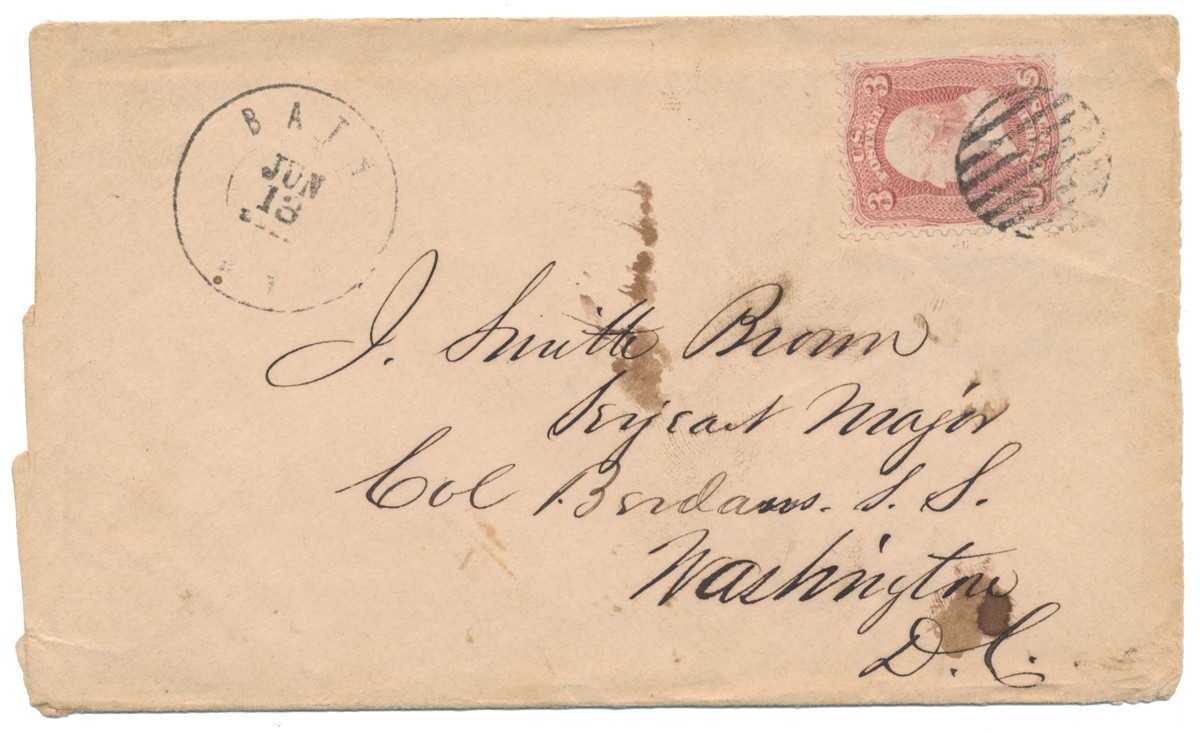 BATH
JUN
18
3 U.S. POSTAGE 3
U S
J. Smith Brown
Serjeant Major
Col Berdans. S. S.
Washington
D.C.